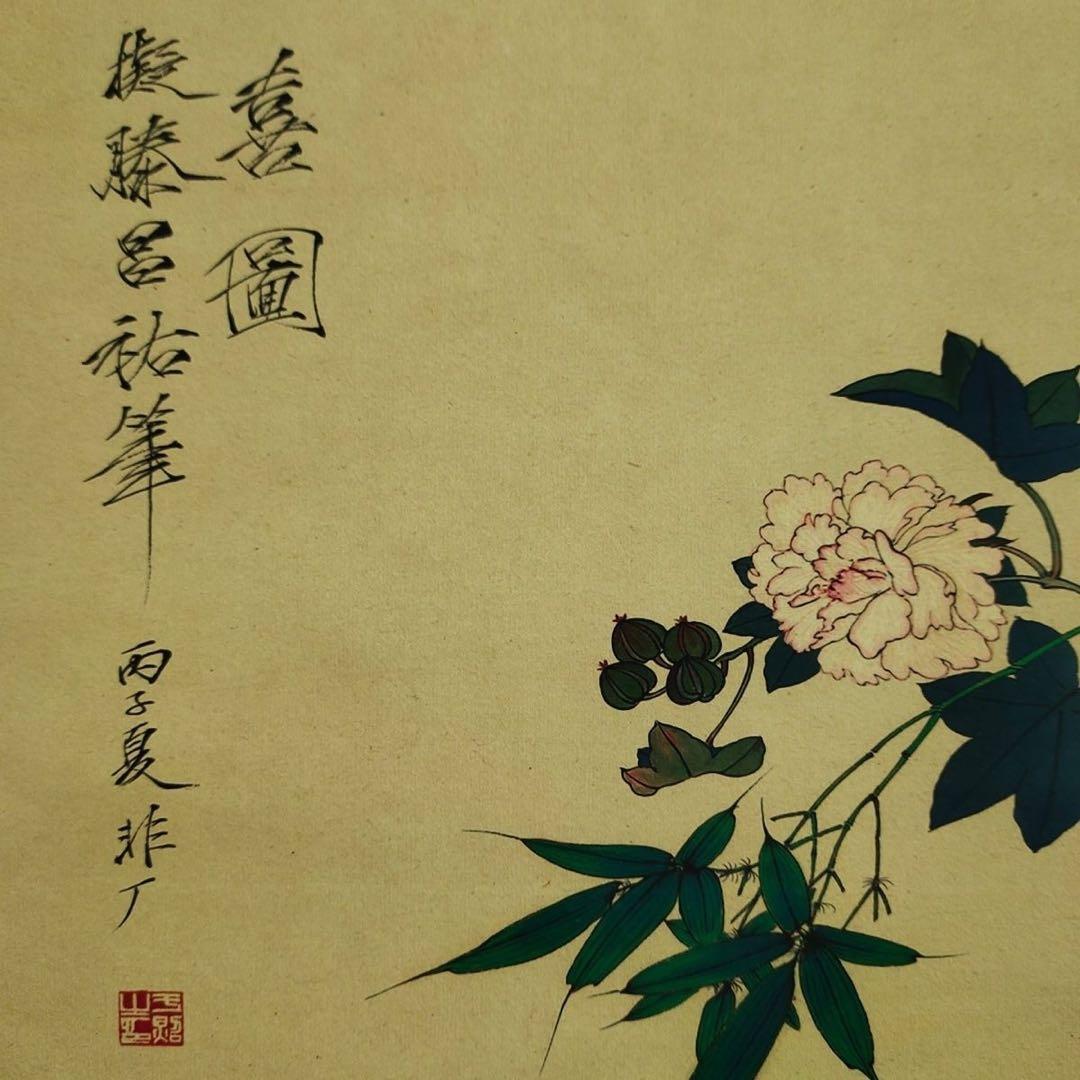 喜圖
擬滕昌祐筆
丙子夏 非厂